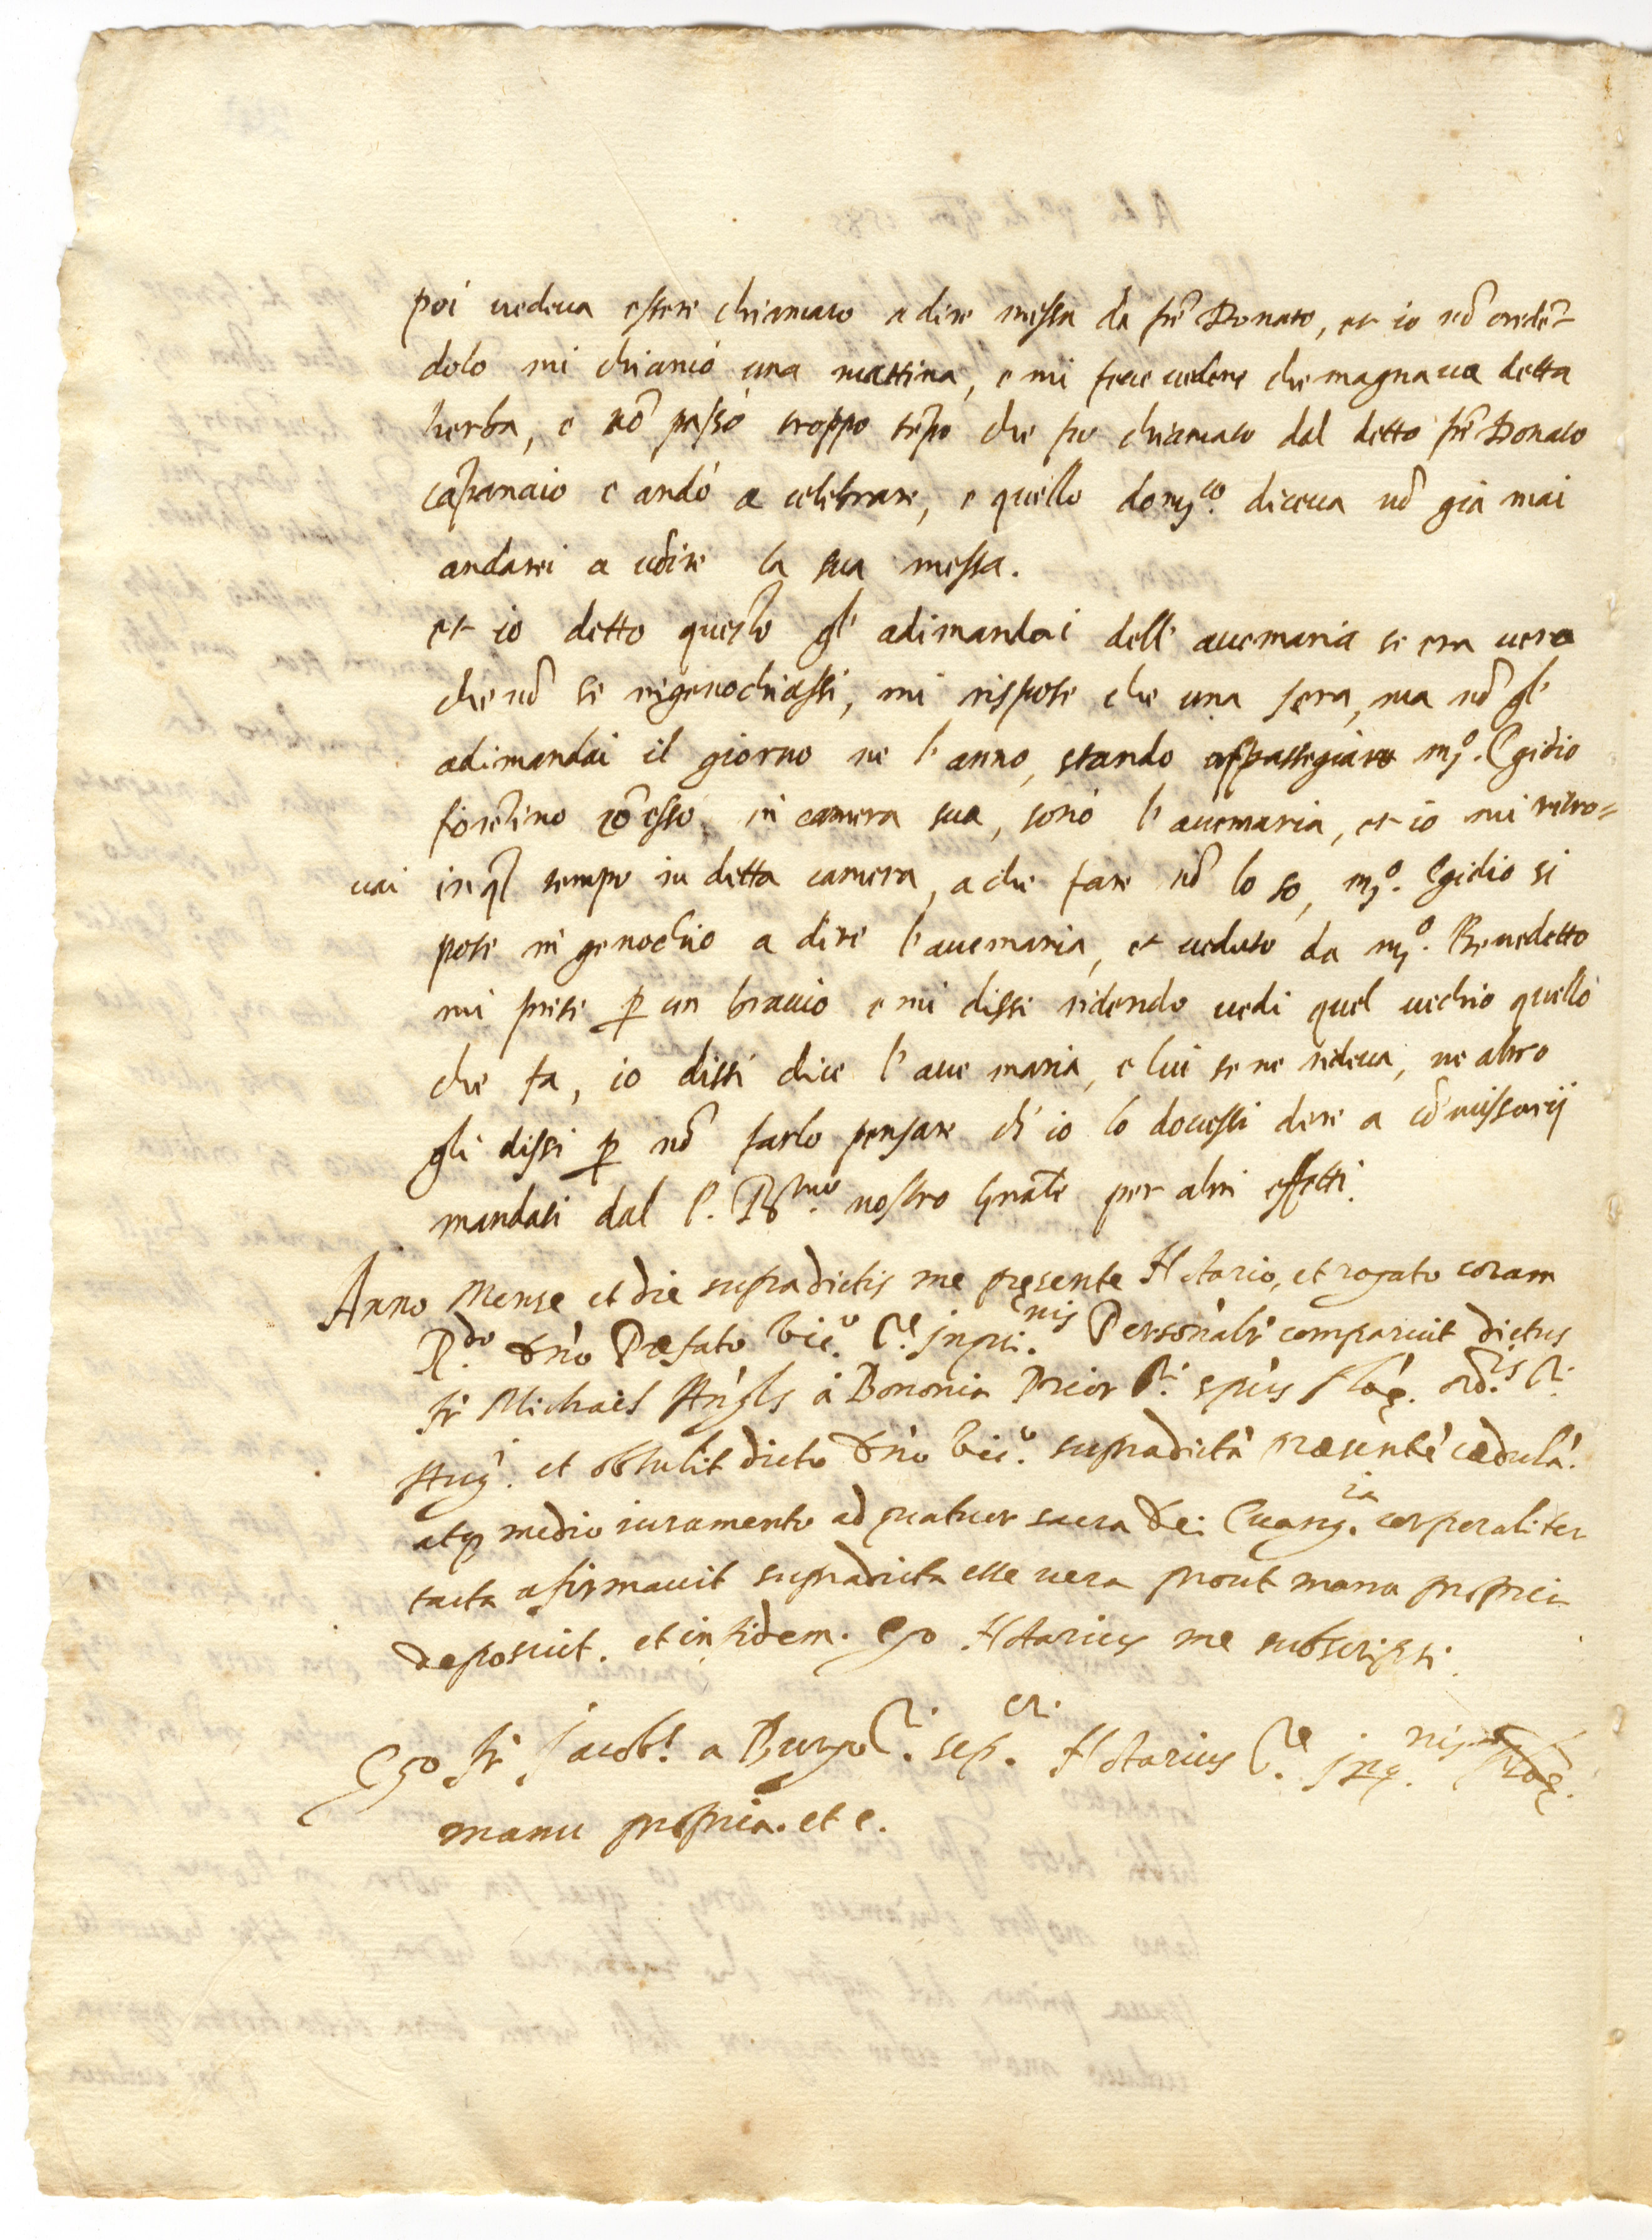 poi uedeua essere chiamato a dire messa da frẽ Donato, et io nõ credẽ-
dolo mi chiamò una mattina, e mi fece uedere che magnaua detta
herba, e nõ passò troppo tẽpo che fu chiamato dal detto frẽ Donato
cãpanaio e andò a celebrare, e quello domco. diceua nõ già mai
andarei a udire la sua messa.
et io detto questo gl' adimandai dell' auemaria se era uero
che nõ se nigenochiassi, mi rispose che una sera, ma nõ gl'
adimandai il giorno ne l' anno, stando appassegiare mro. Egidio
fiorẽtino cõ esso in camera sua, sonò l' auemaria, et io mi ritro=
uai in ql tempo in detta camera, a che fare nõ lo so, mro. Egidio si
pose in genochio a dire l' auemaria, et ueduto da mro. Benedetto
mi prese p un braccio e mi dissi ridendo uedi quel uechio quello
che fa, io dissi dice l' aue maria, e lui se ne rideua, ne altro
gli dissi p nõ farlo pensare ch' io lo douessi dire a cõmissarij
mandati dal P. Rmo. nostro gnãle per altri effetti.
Anno Mense et die supradictis me presente Notario, et rogato coram
Rdo. Dño Præfato Vico. Ste. Inqui.nis Personalr comparuit dictus
fr Michael Angls à Bononia Prior Sti. spũs Flõę. ordis. Sti.
Aug. et obtulit dicto Dño Vico. supradictã præsentẽ cædulã.
atq medio iuramento ad quatuor sacra Dei Euang.ia corporaliter
tacta afirmauit supradicta esse uera prout manu propria
deposuit. et in fidem. Ego Notarius me subscripsi.
Ego fr Jacobs. a Burgo Sti. sep.cri. Notarius Ste. Inq.nis Floę.
manu propria. et c.